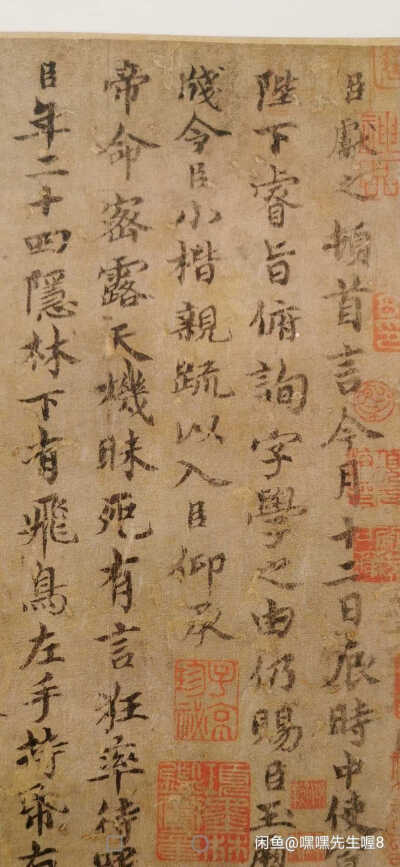 臣獻之頓首言今月十二日辰時中使
陛下睿旨俯詢字學之由仍賜臣玉
牋令臣小楷親疏以入臣仰承
帝命密露天機昧死有言狂率待
臣年二十四隱林下有飛鳥左手持帋右
神品
子京珍祕
闲鱼@嘿嘿先生喔8